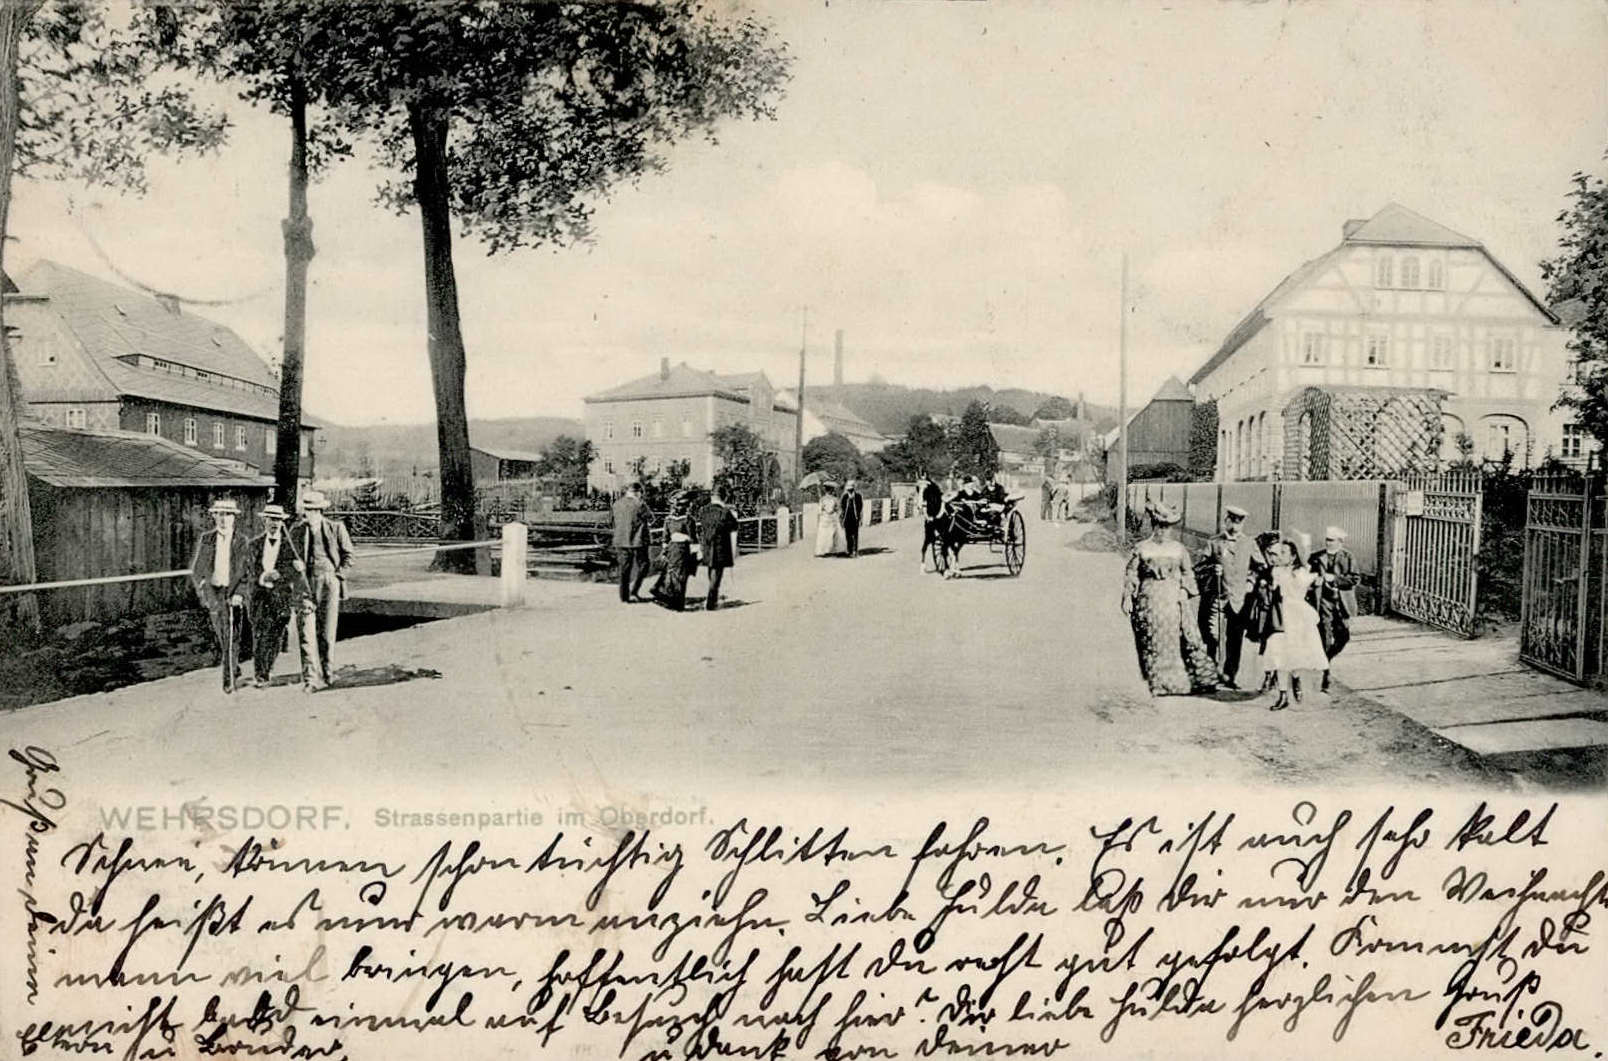 WEHRSDORF. Strassenpartie im Oberdorf.
Schnee, können schon tüchtig Schlitten fahren. Es ist auch sehr kalt
da heißt es nur warm anziehn. Liebe Hulda laß Dir nur den Weihnachts
mann viel bringen, hoffentlich hast Du recht gut gefolgt. Kommst Du
nicht bald einmal auf Besuch nach hier? Dir liebe Hulda herzlichen Gruß
u Dank von Deiner Frieda.
Grüße an Deine
Eltern u Bruder.